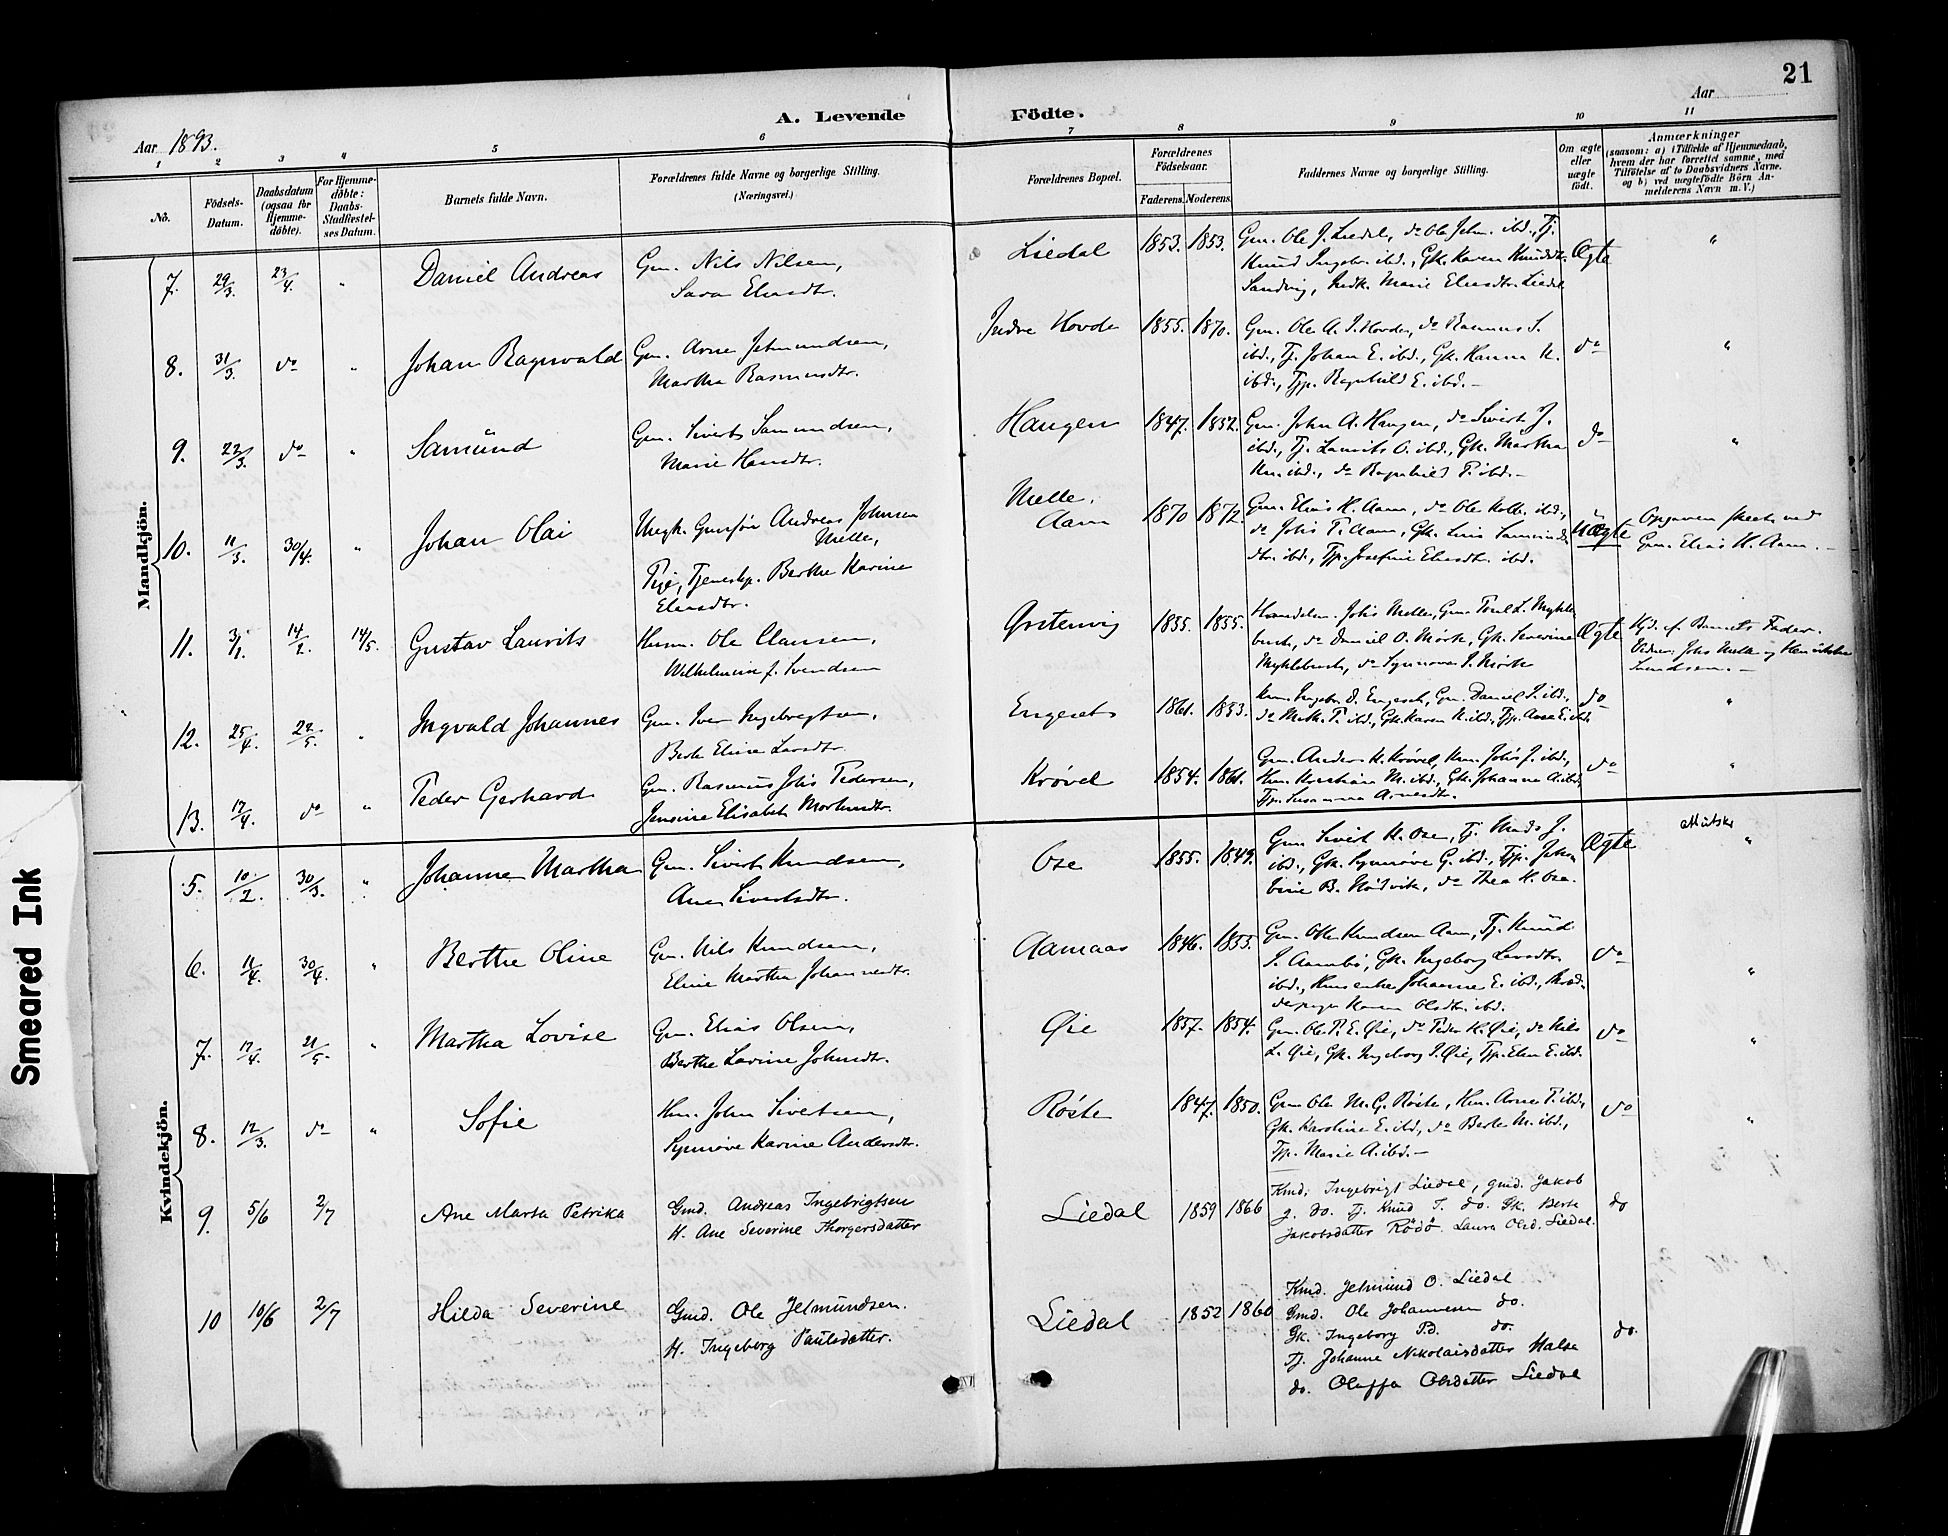 21
A. Levende Födte.
Aar 1893.
Aar
1 2 3 4 5 6 7 8 9 10 11
No.
Födsels-Datum.
Daabsdatum (ogsaa för Hjemme-döbte).
For Hjemme-döbte: Daabs-Stadfæstel-ses Datum.
Barnets fulde Navn.
Forældrenes fulde Navne og borgerlige Stilling. (Næringsvei.)
Forældrenes Bopæl.
Forældrenes Födselsaar.
Faderens. Moderens.
Faddernes Navne og borgerlige Stilling.
Om ægte eller uægte födt.
Anmærkninger (saasom: a) i Tilfælde af Hjemmedaab, hvem der har forrettet samme, med Tilföielse af to Daabsvidners Navne. og b) ved uægtefödte Börn An-melderens Navn m. V.)
Mandkjön.
7. 29/3. 23/4. " Daniel Andreas Gm. Nils Nilsen, Liedal 1853. 1853. Gm. Ole J. Liedal, do Ole John. ibd., Tj. Ægte "
Sara Eliasdtr. Knud Ingebr. ibd., Gk. Karen Knudsdtr.
Sandvig, Marie Eliasdtr. Liedal
8. 31/3. do " Johan Ragnvald Gm. Arne Jetmundsen, Indre Hovde 1855. 1870. Gm. Ole A. I. Hovden, do Rasmus S. do "
Martha Rasmusdtr. ibd., Tj. Johan E. ibd., Gk. Hanna K.
ibd., Tjp. Ragnhild E. ibd. –
9. 22/3. do " Samünd Gm. Sivert Samundsen, Haugen 1847. 1852. Gm. John A. Haugen, do Sivert J. do "
Marie Hansdtr. ibd., Tj. Laurits O. ibd., Gk. Martha
ibd., do Ragnhild P. ibd. –
10. 11/3. 30/4. " Johan Olai Ungk. Gmsøn Andreas Johnsen Melle, Melle, Aam 1870 1872. Gm. Elias K. Aam, do Ole ibd., Uægte Opgaven skeet ved
Pige, Tjenestp. Berthe Karine do Johs P. Aam, Gk. Gm. Elias K. Aam. –
Eliasdtr. ibd., Tjp. Josefine Eliasdtr. ibd.
11. 3/1. 14/2. 14/5. Gustav Laurits Husm. Ole Clausen, 1855. 1855. Handelsm. Johs Melle, Gm. Poul L. Mykle Ægte Hjd. af Barnets Fader.
Wilhelmine f. Svendsen busk, do Daniel O. Mork, Gk. Severine Vidner: Johs Melle og
Myklebusk, do Synnøve I. Mork
12. 25/4. 22/5. " Ingvald Johannes Gm. Iver Ingebregtsen, Engeset 1861. 1853. Engeset, Gm. Daniel J. ibd., do "
Berte Eline Larsdtr. Gk. Karen K. ibd., Tjp. Anne E. ibd.
13. 17/4. do " Peder Gerhard Gm. Rasmus Johs Pedersen, Krøvel 1854. 1861. Gm. Anders K. Krøvel, Johs J. ibd., do "
Jensine Elisabeth ibd., Gk. Johanne A. ibd.
Tjp. Susanna Arnesdtr.
Kvindekjön.
5. 10/2. 30/3. " Johanne Martha Gm. Sivert Knudsen, Ose 1855. 1849. Gm. Sivert K. Ose, Tj. Mads J. Ægte "
Ane Sivertsdtr. ibd., Gk. Synnøve G. ibd., Tjp.
B. do Thea K. Ose.
6. 11/4. 30/4. " Berthe Oline Gm. Nils Knudsen, Aamaas 1846. 1853. Gm. Knudsen Aam, Tj. Knud do "
Eline Martha Johannesdtr. Gk. Ingeborg Larsdtr.
ibd., Johanne E. ibd.,
Olsdtr. ibd.
7. 17/4. 21/5. " Martha Lovise Gm. Elias Olsen, Øie 1857. 1854. Gm. Ole P. E. Øie, do Peder K. Øie, do Nils do "
Berthe Lavine Johnsdtr. L. Øie, Gk. Ingeborg I. Øie, Tjp. Elen E. ibd.
8. 12/3. do " Sofie Hm. John Sivertsen, Røste 1847. 1850. Gm. Ole M. G. Røste, Hm. Arne P. ibd., do "
Synnøve Karine Andersdtr. Gk. Karoline E. ibd., do Berte M. ibd.,
Tjp. Marie A. ibd. –
9. 5/6 2/7 Ane Marta Petrika Gmd. Andreas Ingebrigtsen Liedal 1859 1866 Kmd. Ingebrigt Liedal, gmd. Jakob do
H. Ane Severine Thorgersdatter J. do. Tj. Knud I. do. Gk. Berte
Jakobsdatter Rödö. Laura Olsd. Liedal.
10 10/6 2/7 Hilda Severine Gmd. Ole Jetmündsen. Liedal 1852 1860 Kmd. Jetmund O. Liedal do.
H. Ingeborg Paulsdatter. Gmd. Ole Johannesen do.
Gk. Ingeborg P.d. do.
Tj. Johanne Nikolaisdatter Halse
do. Oluffa Olsdatter Liedal
Smeared Ink